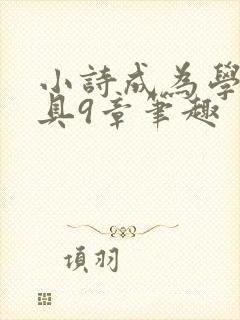 小詩成為學
具9章筆趣
項羽